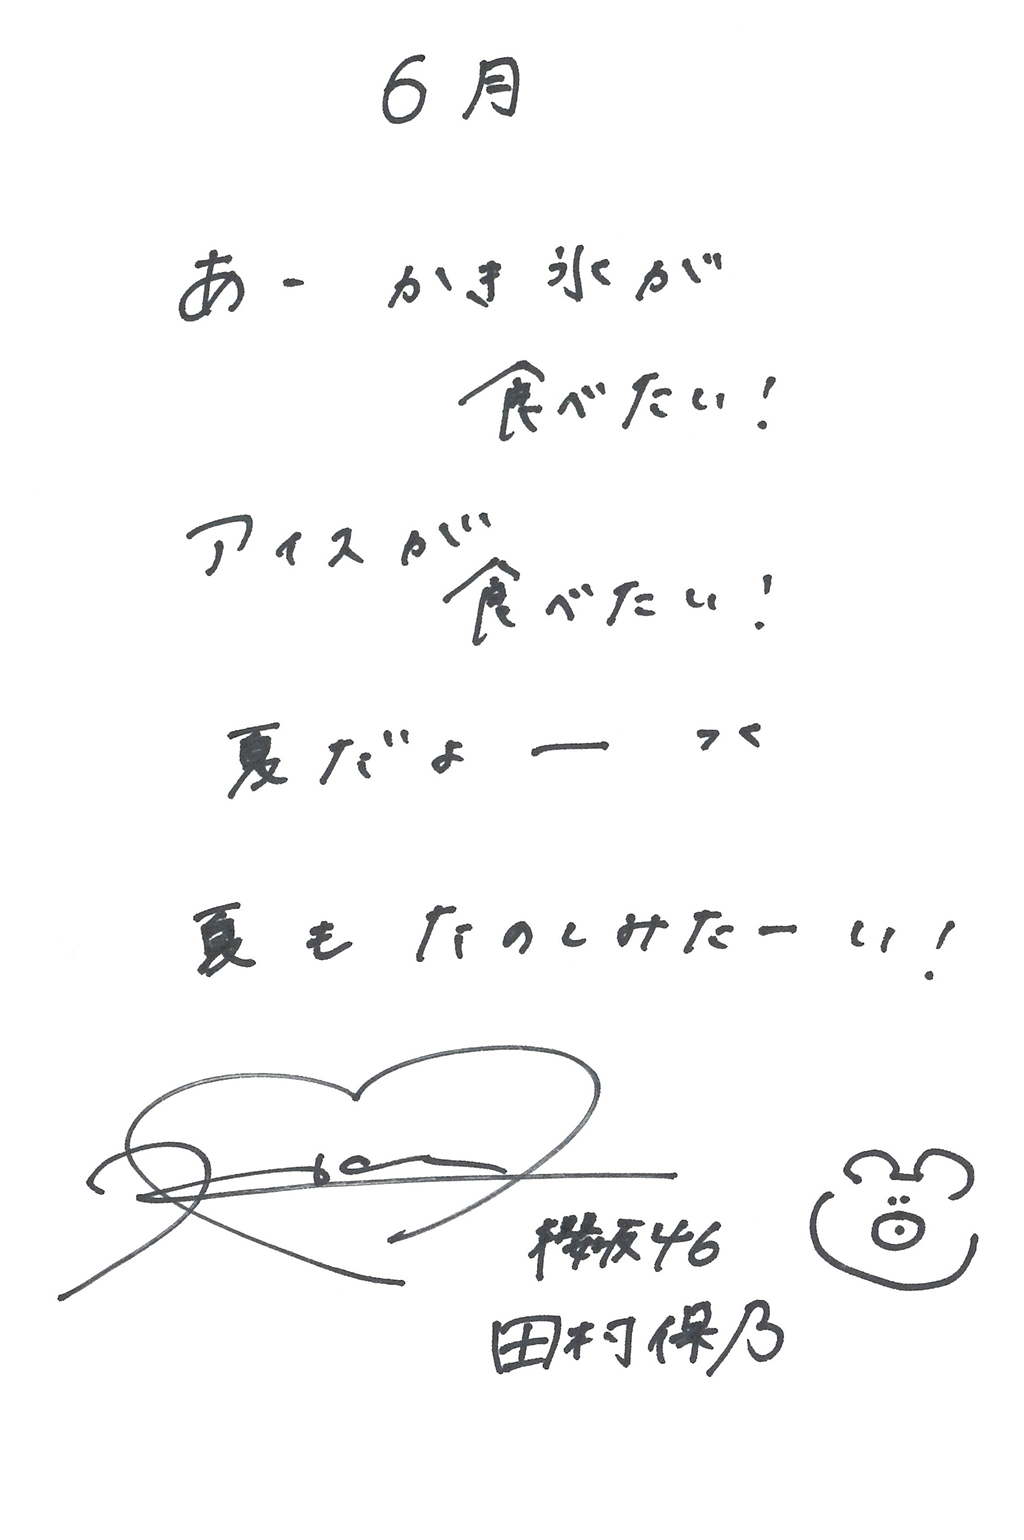 6月
あー かき氷が
食べたい!
アイスが
食べたい!
夏だよー
夏もたのしみたーい!
櫻坂46
田村保乃